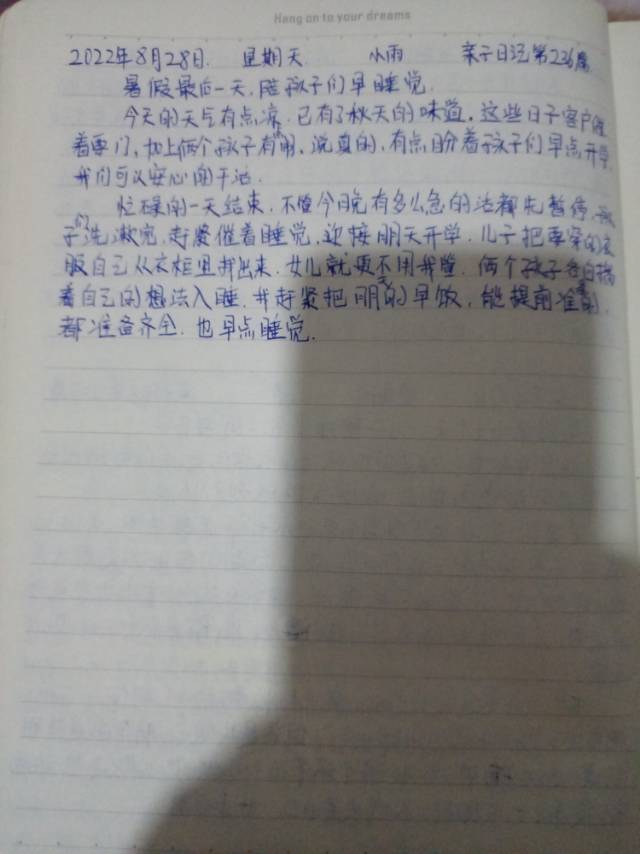 Hang on to your dreams
2022年8月28日. 星期天 小雨 亲子日记第236篇
暑假最后一天,陪孩子们早睡觉.
今天的天气有点凉,已有了秋天的味道,这些日子客户催
着要门,加上俩个孩子有时闹,说真的,有点盼着孩子们早点开学,
我们可以安心的干活.
忙碌的一天结束,不管今晚有多么急的活都先暂停,孩
子们洗漱完,赶紧催着睡觉,迎接明天开学,儿子把要穿的衣
服自己从衣柜里找出来,女儿就更不用我管,俩个孩子各自揣
着自己的想法入睡,我赶紧把明天的早饭,能提前准备的,
都准备齐全,也早点睡觉.